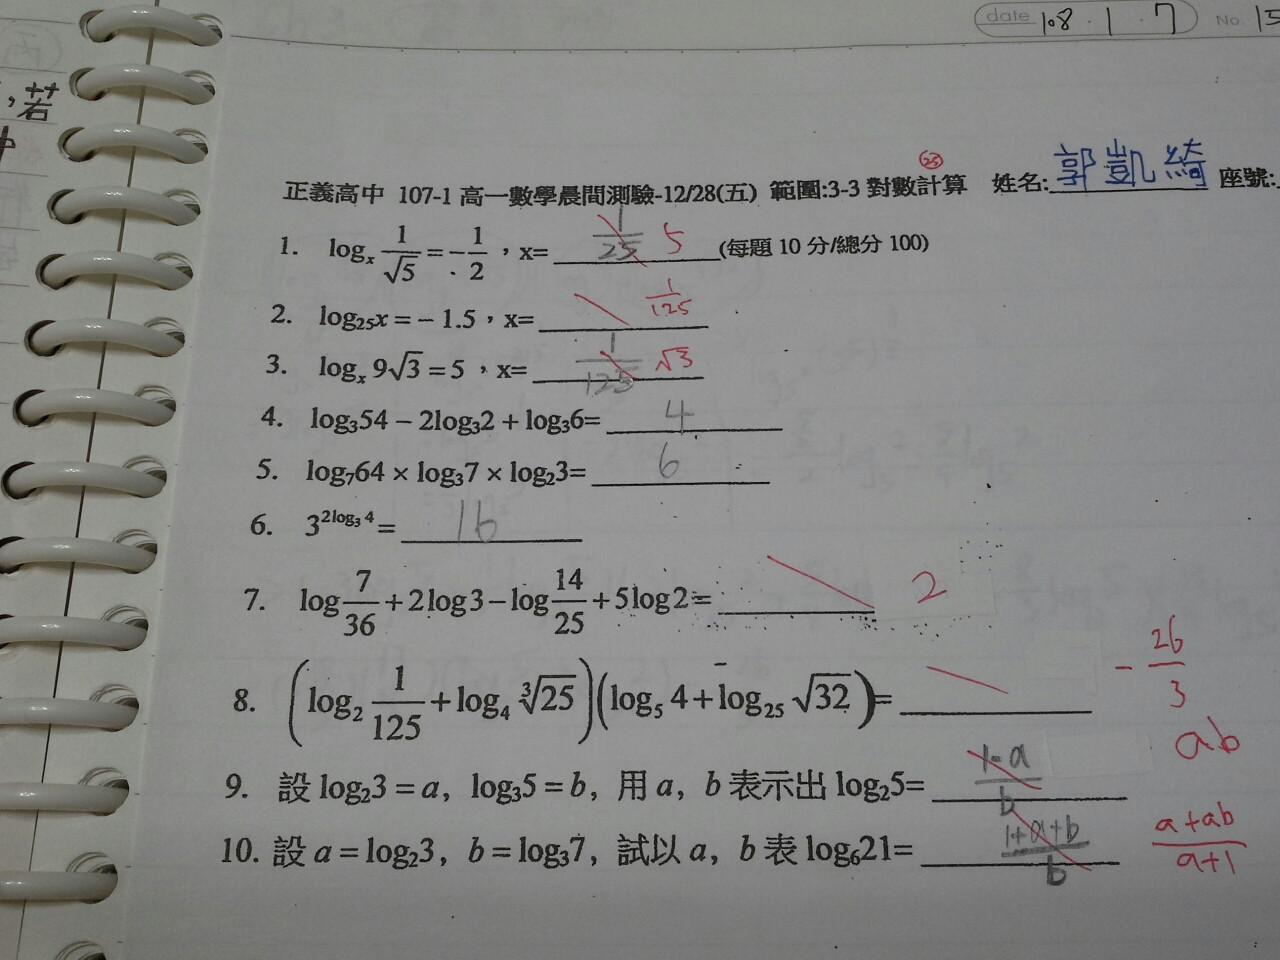 date 108 . 1 . 7 No. 15
, 若
25
正義高中 107-1 高一數學晨間測驗-12/28(五) 範圍:3-3 對數計算 姓名: 郭凱綺 座號:
1. logₓ 1/√5 = -1/2 , x= 1/25 5 (每題 10 分/總分 100)
2. log₂₅x = - 1.5 , x= 1/125
3. logₓ 9√3 = 5 , x= 1/125 √3
4. log₃54 - 2log₃2 + log₃6= 4
5. log₇64 × log₃7 × log₂3= 6
6. 3^(2log₃4) = 16
7. log 7/36 + 2log3 - log 14/25 + 5log2= 2
8. (log₂ 1/125 + log₄ ∛25)(log₅ 4 + log₂₅ √32)= - 26/3
9. 設 log₂3 = a, log₃5 = b, 用 a, b 表示出 log₂5= 1-a/b ab
10. 設 a = log₂3, b = log₃7, 試以 a, b 表 log₆21= 1+a+b/b a+ab/a+1